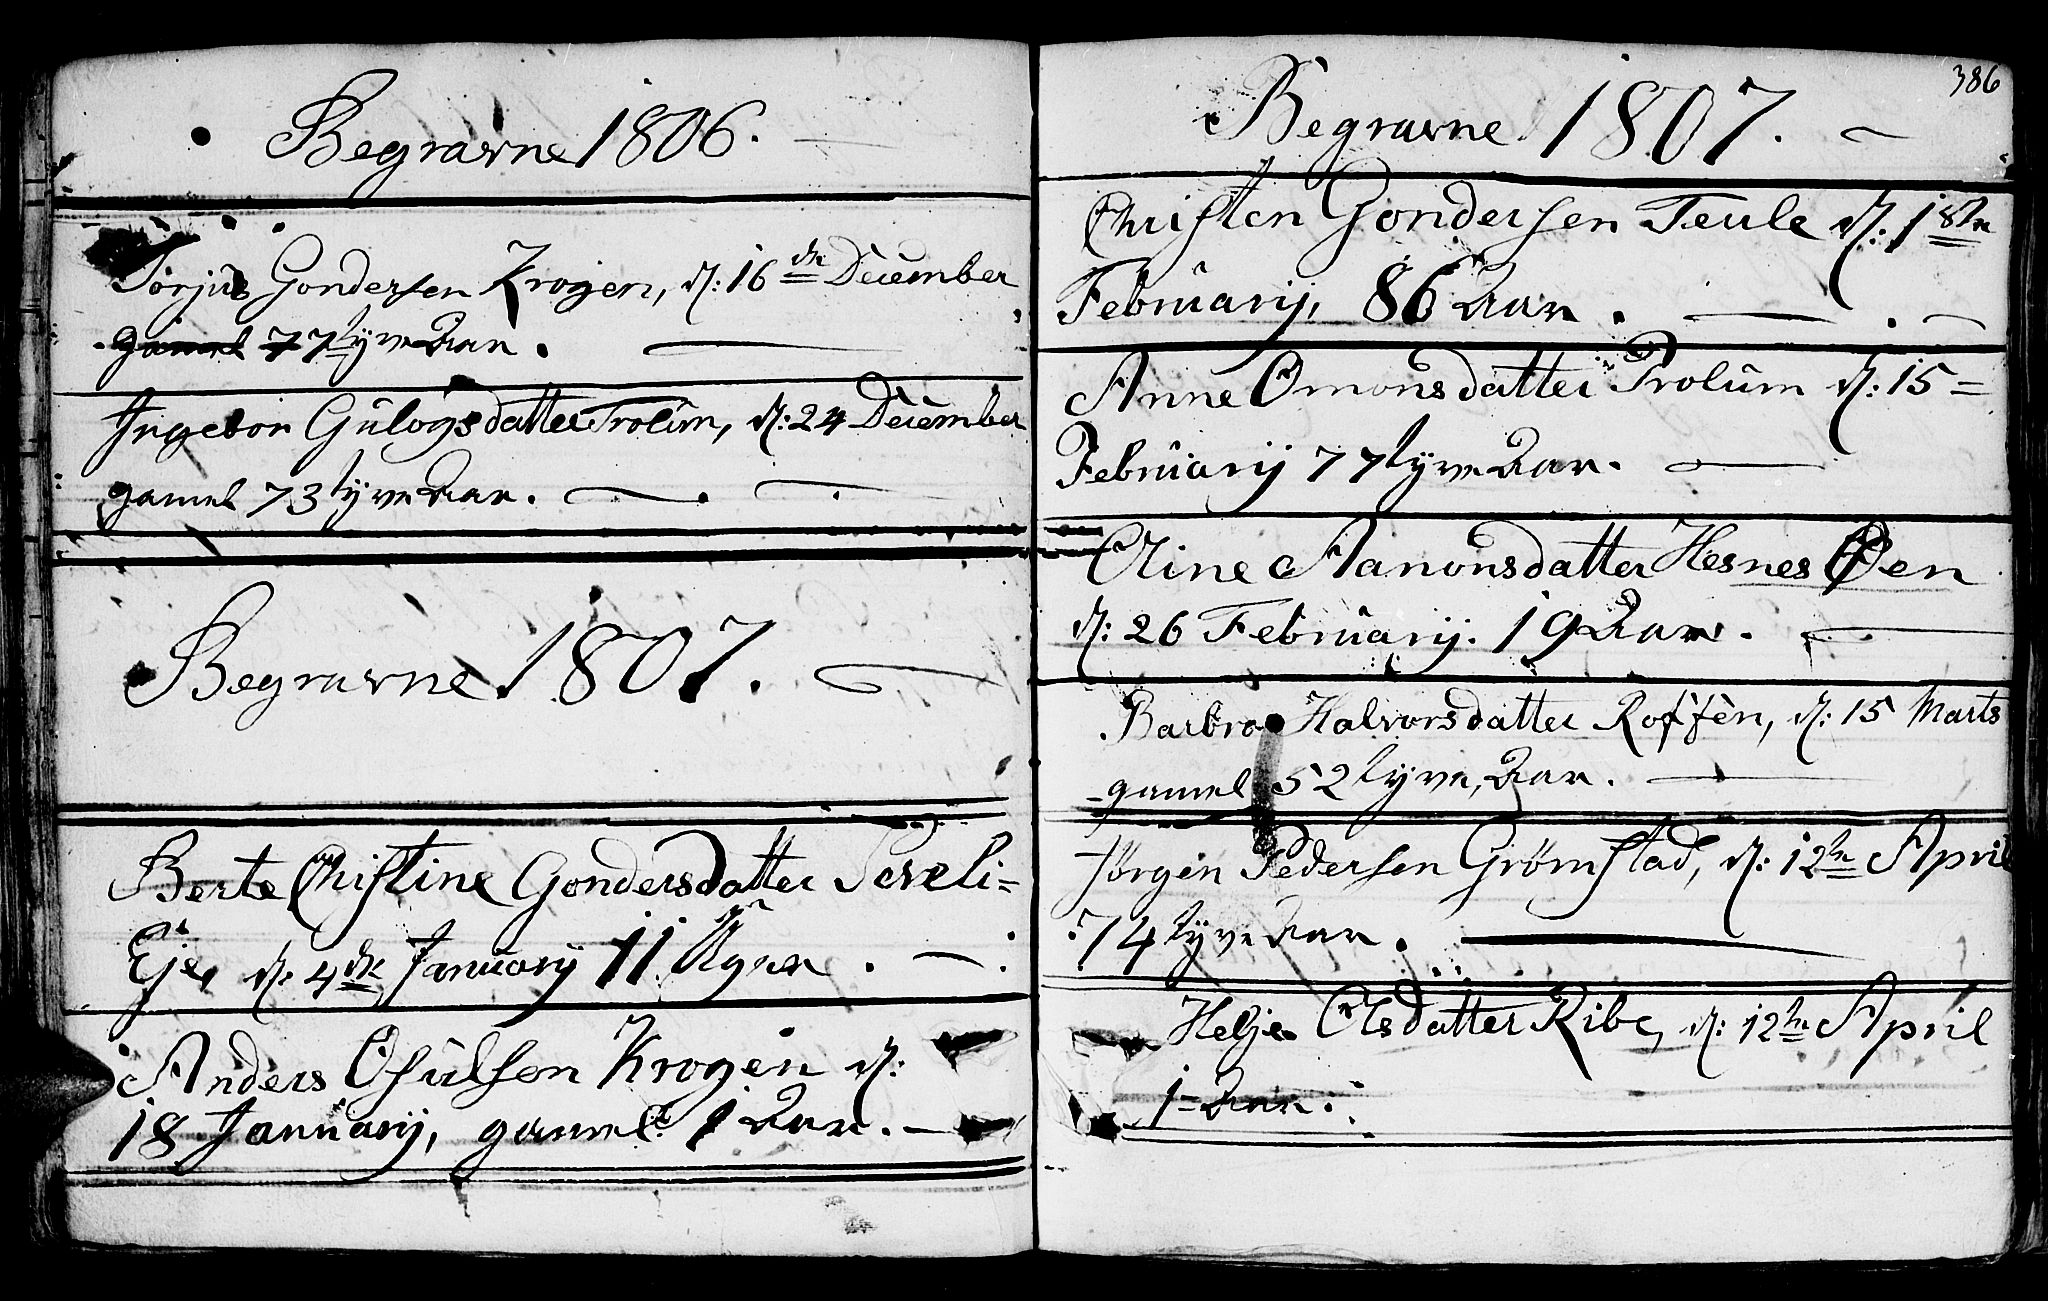 Begravne 1806.
Torjus Gondersen Krogen, d: 16de December
gamel 77tyve Aar.
Ingebor Gulogsdatter Trolum, d: 24 December
gamel 73tyve Aar.
Begravne 1807.
Berte Christine Gondersdatter Tereli=
Eje, d: 4de January 11 Uger.
Anders Osulsen Krogen d:
18 January, gamel 1 Aar.
386
Begravne 1807.
Christen Gondersen Teule d: 1ste
Februarij, 86 Aar.
Anne Omonsdatter Trolum d: 15=
Februarij 77tyve Aar.
Eline Aanonsdatter Hesnes Øen
d: 26 Februarij. 19 Aar.
Barbro Halvorsdatter Roffèn, d: 15 Marts
gamel 52tyve, Aar.
Jørgen Pedersen Grømstad, d: 12te April
74tyve Aar.
Helje Olsdatter Ribe, d: 12te April
1= Aar.